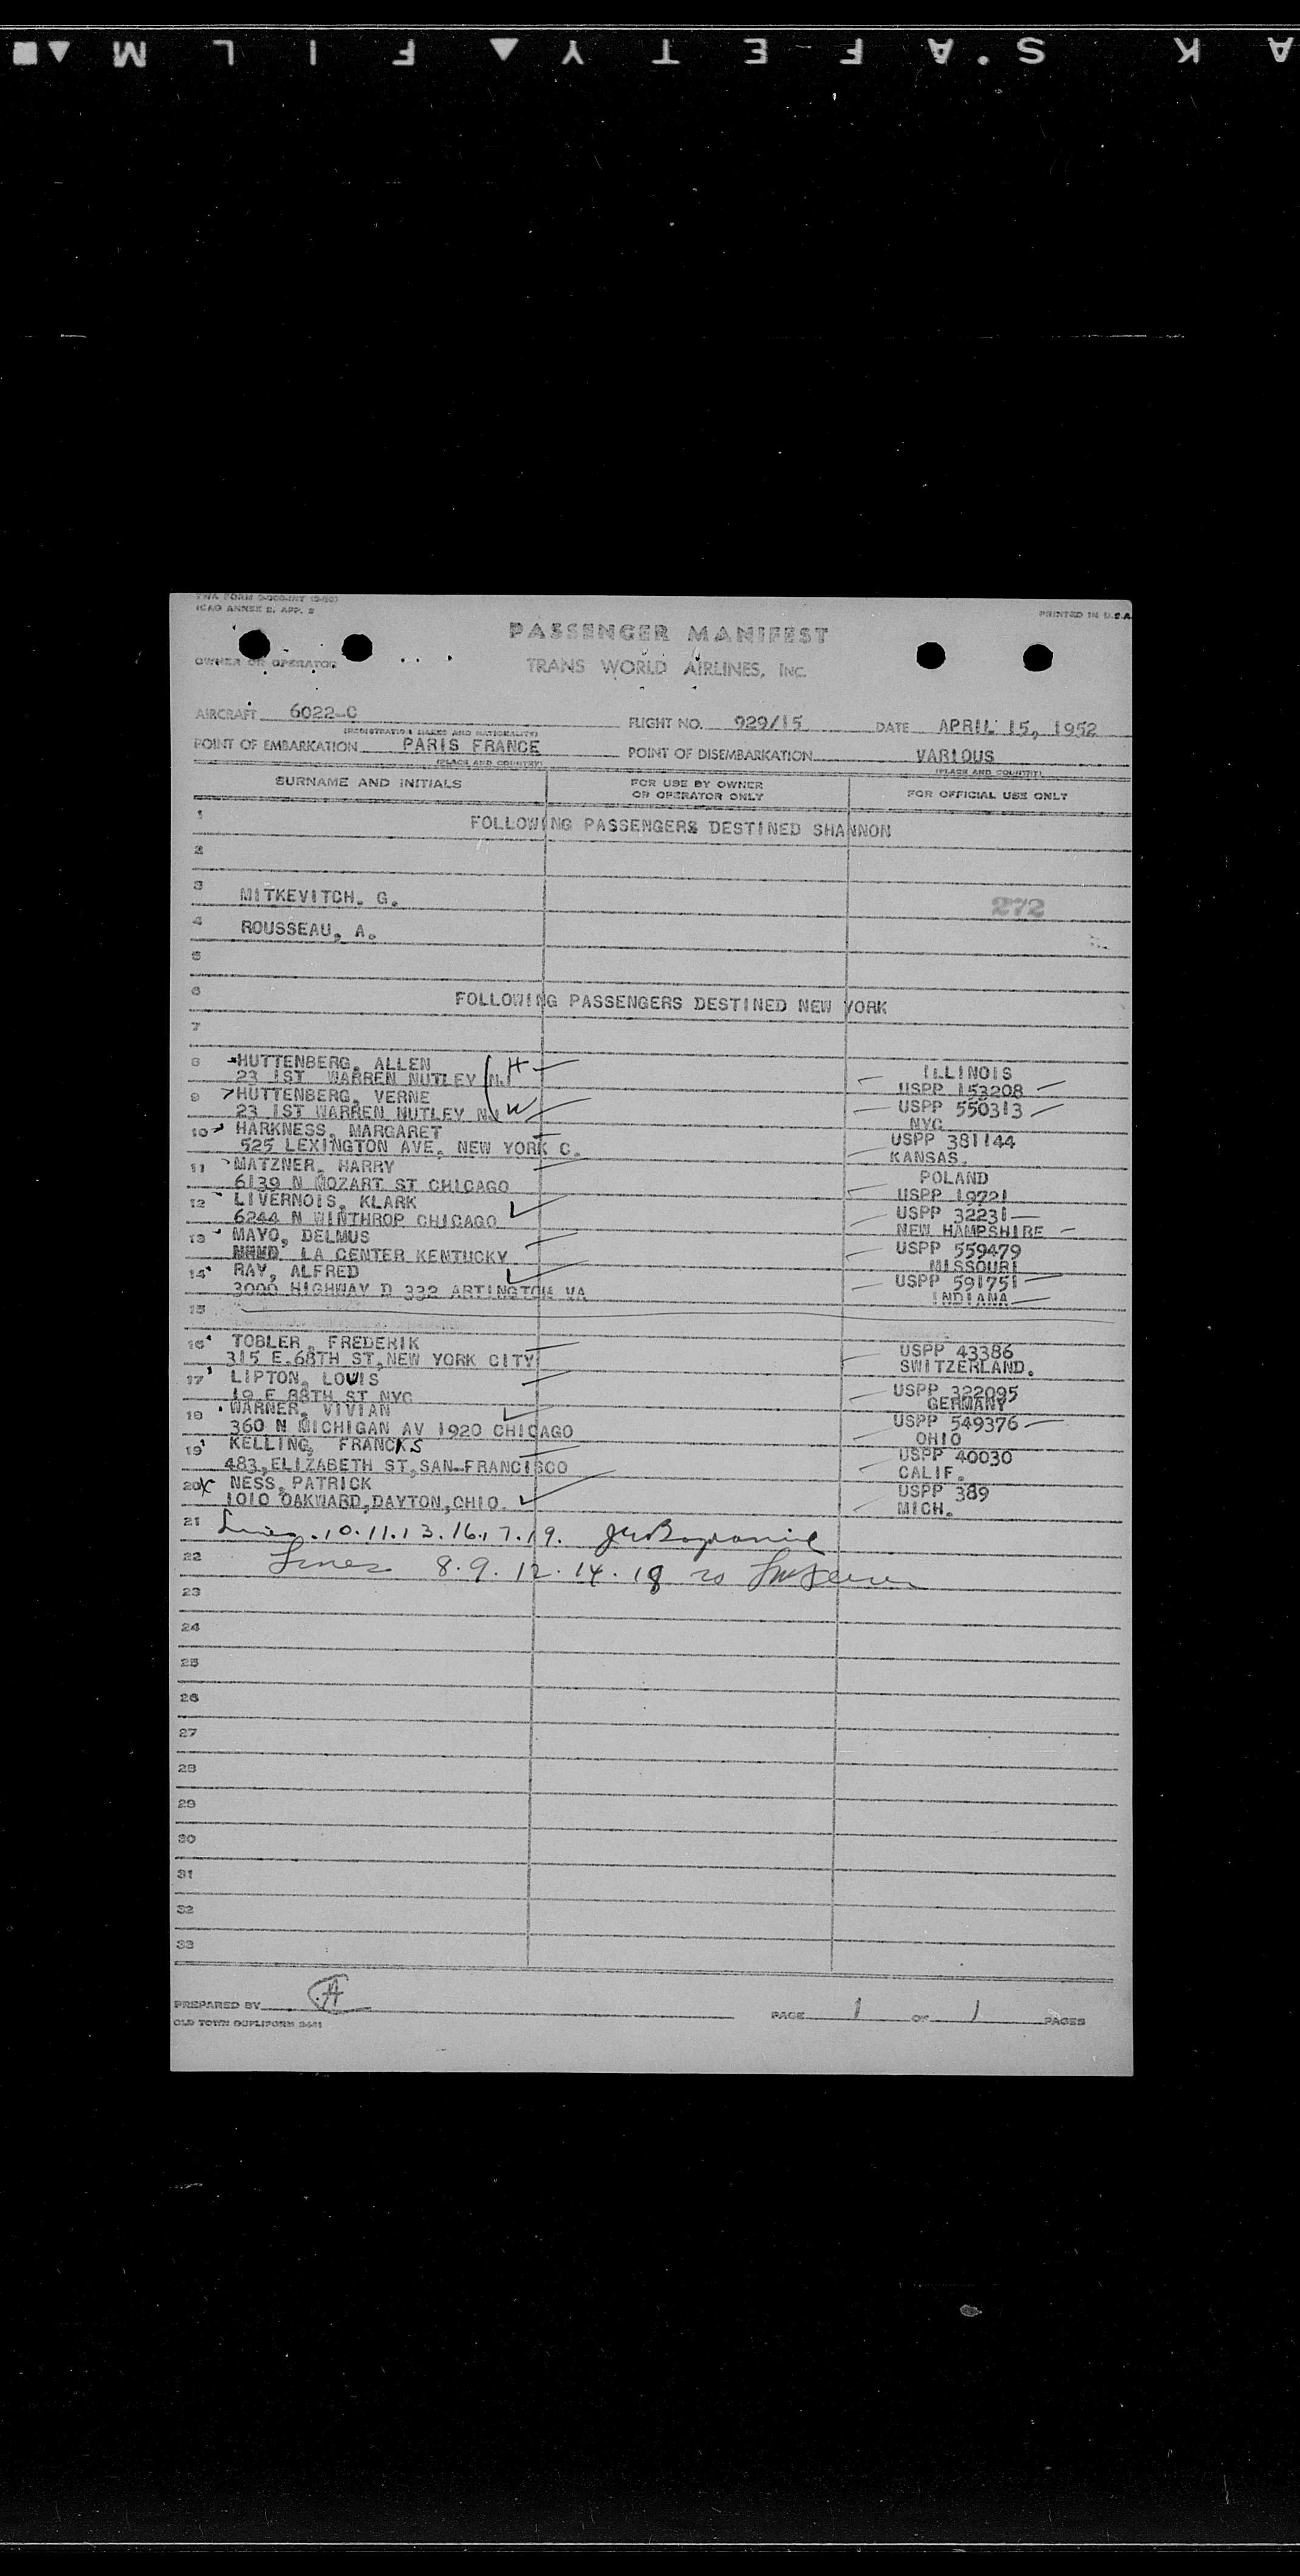 SAFETY FILM
ICAO ANNEX 9, APP. 3
PRINTED IN U.S.A.
PASSENGER MANIFEST
OWNER OR OPERATOR
TRANS WORLD AIRLINES, INC.
AIRCRAFT 6022-C FLIGHT NO. 929/15 DATE APRIL 15, 1952
(REGISTRATION MARKS AND NATIONALITY)
POINT OF EMBARKATION PARIS FRANCE POINT OF DISEMBARKATION VARIOUS
(PLACE AND COUNTRY) (PLACE AND COUNTRY)
SURNAME AND INITIALS FOR USE BY OWNER OR OPERATOR ONLY FOR OFFICIAL USE ONLY
1 FOLLOWING PASSENGERS DESTINED SHANNON
2
3 MITKEVITCH. G. 272
4 ROUSSEAU, A.
5
6 FOLLOWING PASSENGERS DESTINED NEW YORK
7
8 HUTTENBERG, ALLEN H ILLINOIS
23 1ST WARREN NUTLEY NJ USPP 153208
9 HUTTENBERG, VERNE USPP 550313
23 1ST WARREN NUTLEY NJ W NYC
10 HARKNESS, MARGARET USPP 381144
525 LEXINGTON AVE. NEW YORK C. KANSAS.
11 MATZNER, HARRY POLAND
6139 N MOZART ST CHICAGO USPP 19721
12 LIVERNOIS, KLARK USPP 32231
6244 N WINTHROP CHICAGO NEW HAMPSHIRE
13 MAYO, DELMUS USPP 559479
LA CENTER KENTUCKY MISSOURI
14 RAY, ALFRED USPP 591751
3000 HIGHWAY D 332 ARTINGTON VA INDIANA
15
16 TOBLER, FREDERIK USPP 43386
315 E.68TH ST,NEW YORK CITY SWITZERLAND.
17 LIPTON, LOUIS USPP 322095
19 E 88TH ST NYC GERMANY
18 WARNER, VIVIAN USPP 549376
360 N MICHIGAN AV 1920 CHICAGO OHIO
19 KELLING, FRANCKS USPP 40030
483,ELIZABETH ST,SAN-FRANCISCO CALIF.
20 NESS, PATRICK USPP 389
1010 OAKWARD,DAYTON,OHIO. MICH.
21 Lines 10.11.13.16.17.19.
22 Lines 8.9.12.14.18 20
23
24
25
26
27
28
29
30
31
32
33
PREPARED BY PAGE 1 OF 1 PAGES
OLD TOWN DUPLIFORM